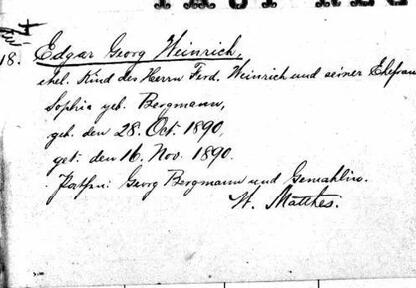 18. Edgar Georg Weinrich,
ehel. Kind des Herrn Ferd. Weinrich und seiner Ehefrau
Sophia geb. Bergmann,
geb. den 28. Oct. 1890,
get. den 16. Nov. 1890.
Pathen: Georg Bergmann und Gemahlin.
W. Matthes.